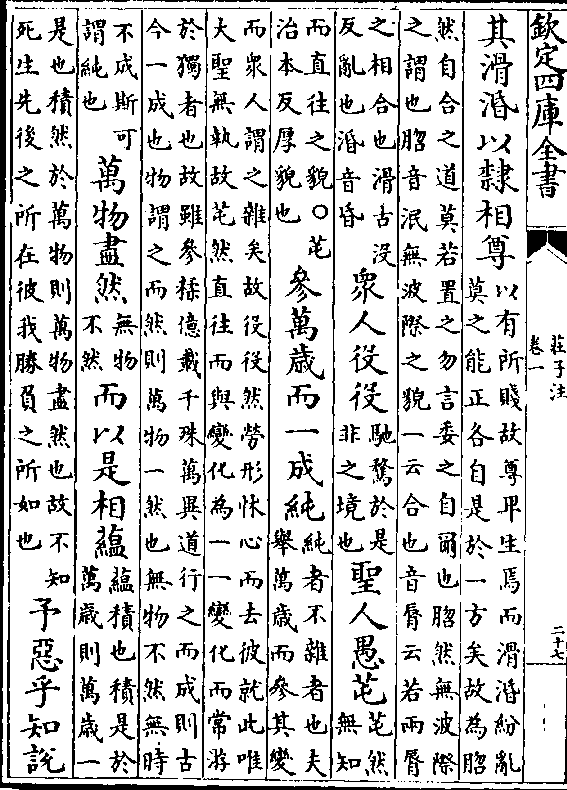 欽定四庫全書
莊子注
卷一
二十七
其滑涽以隸相尊
以有所賤故尊卑生焉而滑涽紛亂
莫之能正各自是於一方矣故為脗
然自合之道莫若置之勿言委之自爾也脗然無波際
之謂也脗音泯無波際之貌一云合也音脣云若兩脣
之相合也滑古没
反亂也涽音昏
衆人役役
馳騖於是
非之境也
聖人愚芚
芚然
無知
而直往之貌〇芚
治本反厚貌也
參萬歳而一成純
純者不雜者也夫
舉萬歳而參其變
而衆人謂之雜矣故役役然勞形怵心而去彼就此唯
大聖無執故芚然直往而與變化為一一變化而常游
於獨者也故雖參糅億載千珠萬異道行之而成則古
今一成也物謂之而然則萬物一然也無物不然無時
不成斯可
謂純也
萬物盡然
無物
不然
而以是相蘊
蘊積也積是於
萬歳則萬歳一
是也積然於萬物則萬物盡然也故不知
死生先後之所在彼我勝負之所如也
予惡乎知說